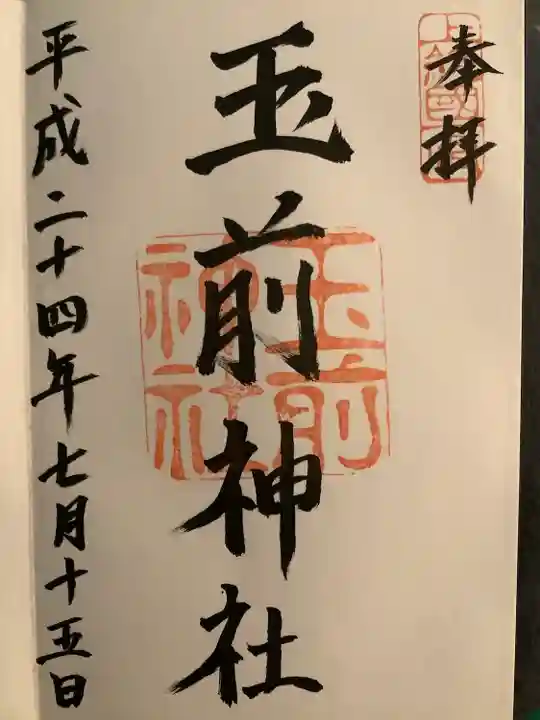 奉拝
上総國一宮
玉前神社
玉前神社
平成二十四年七月十五日